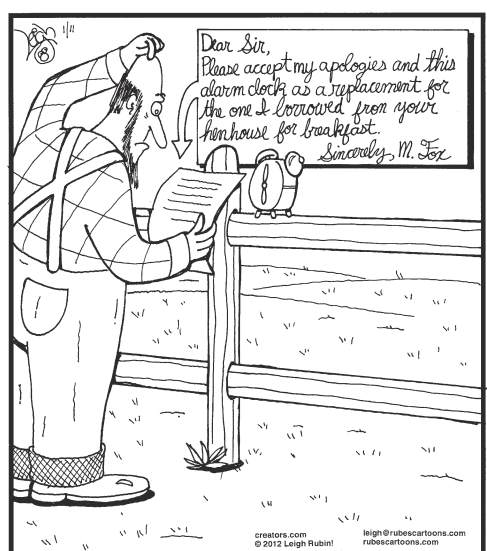 1/11
Dear Sir,
Please accept my apologies and this
alarm clock as a replacement for
the one I borrowed from your
henhouse for breakfast.
Sincerely, M. Fox
creators.com
© 2012 Leigh Rubin!
leigh@rubescartoons.com
rubescartoons.com